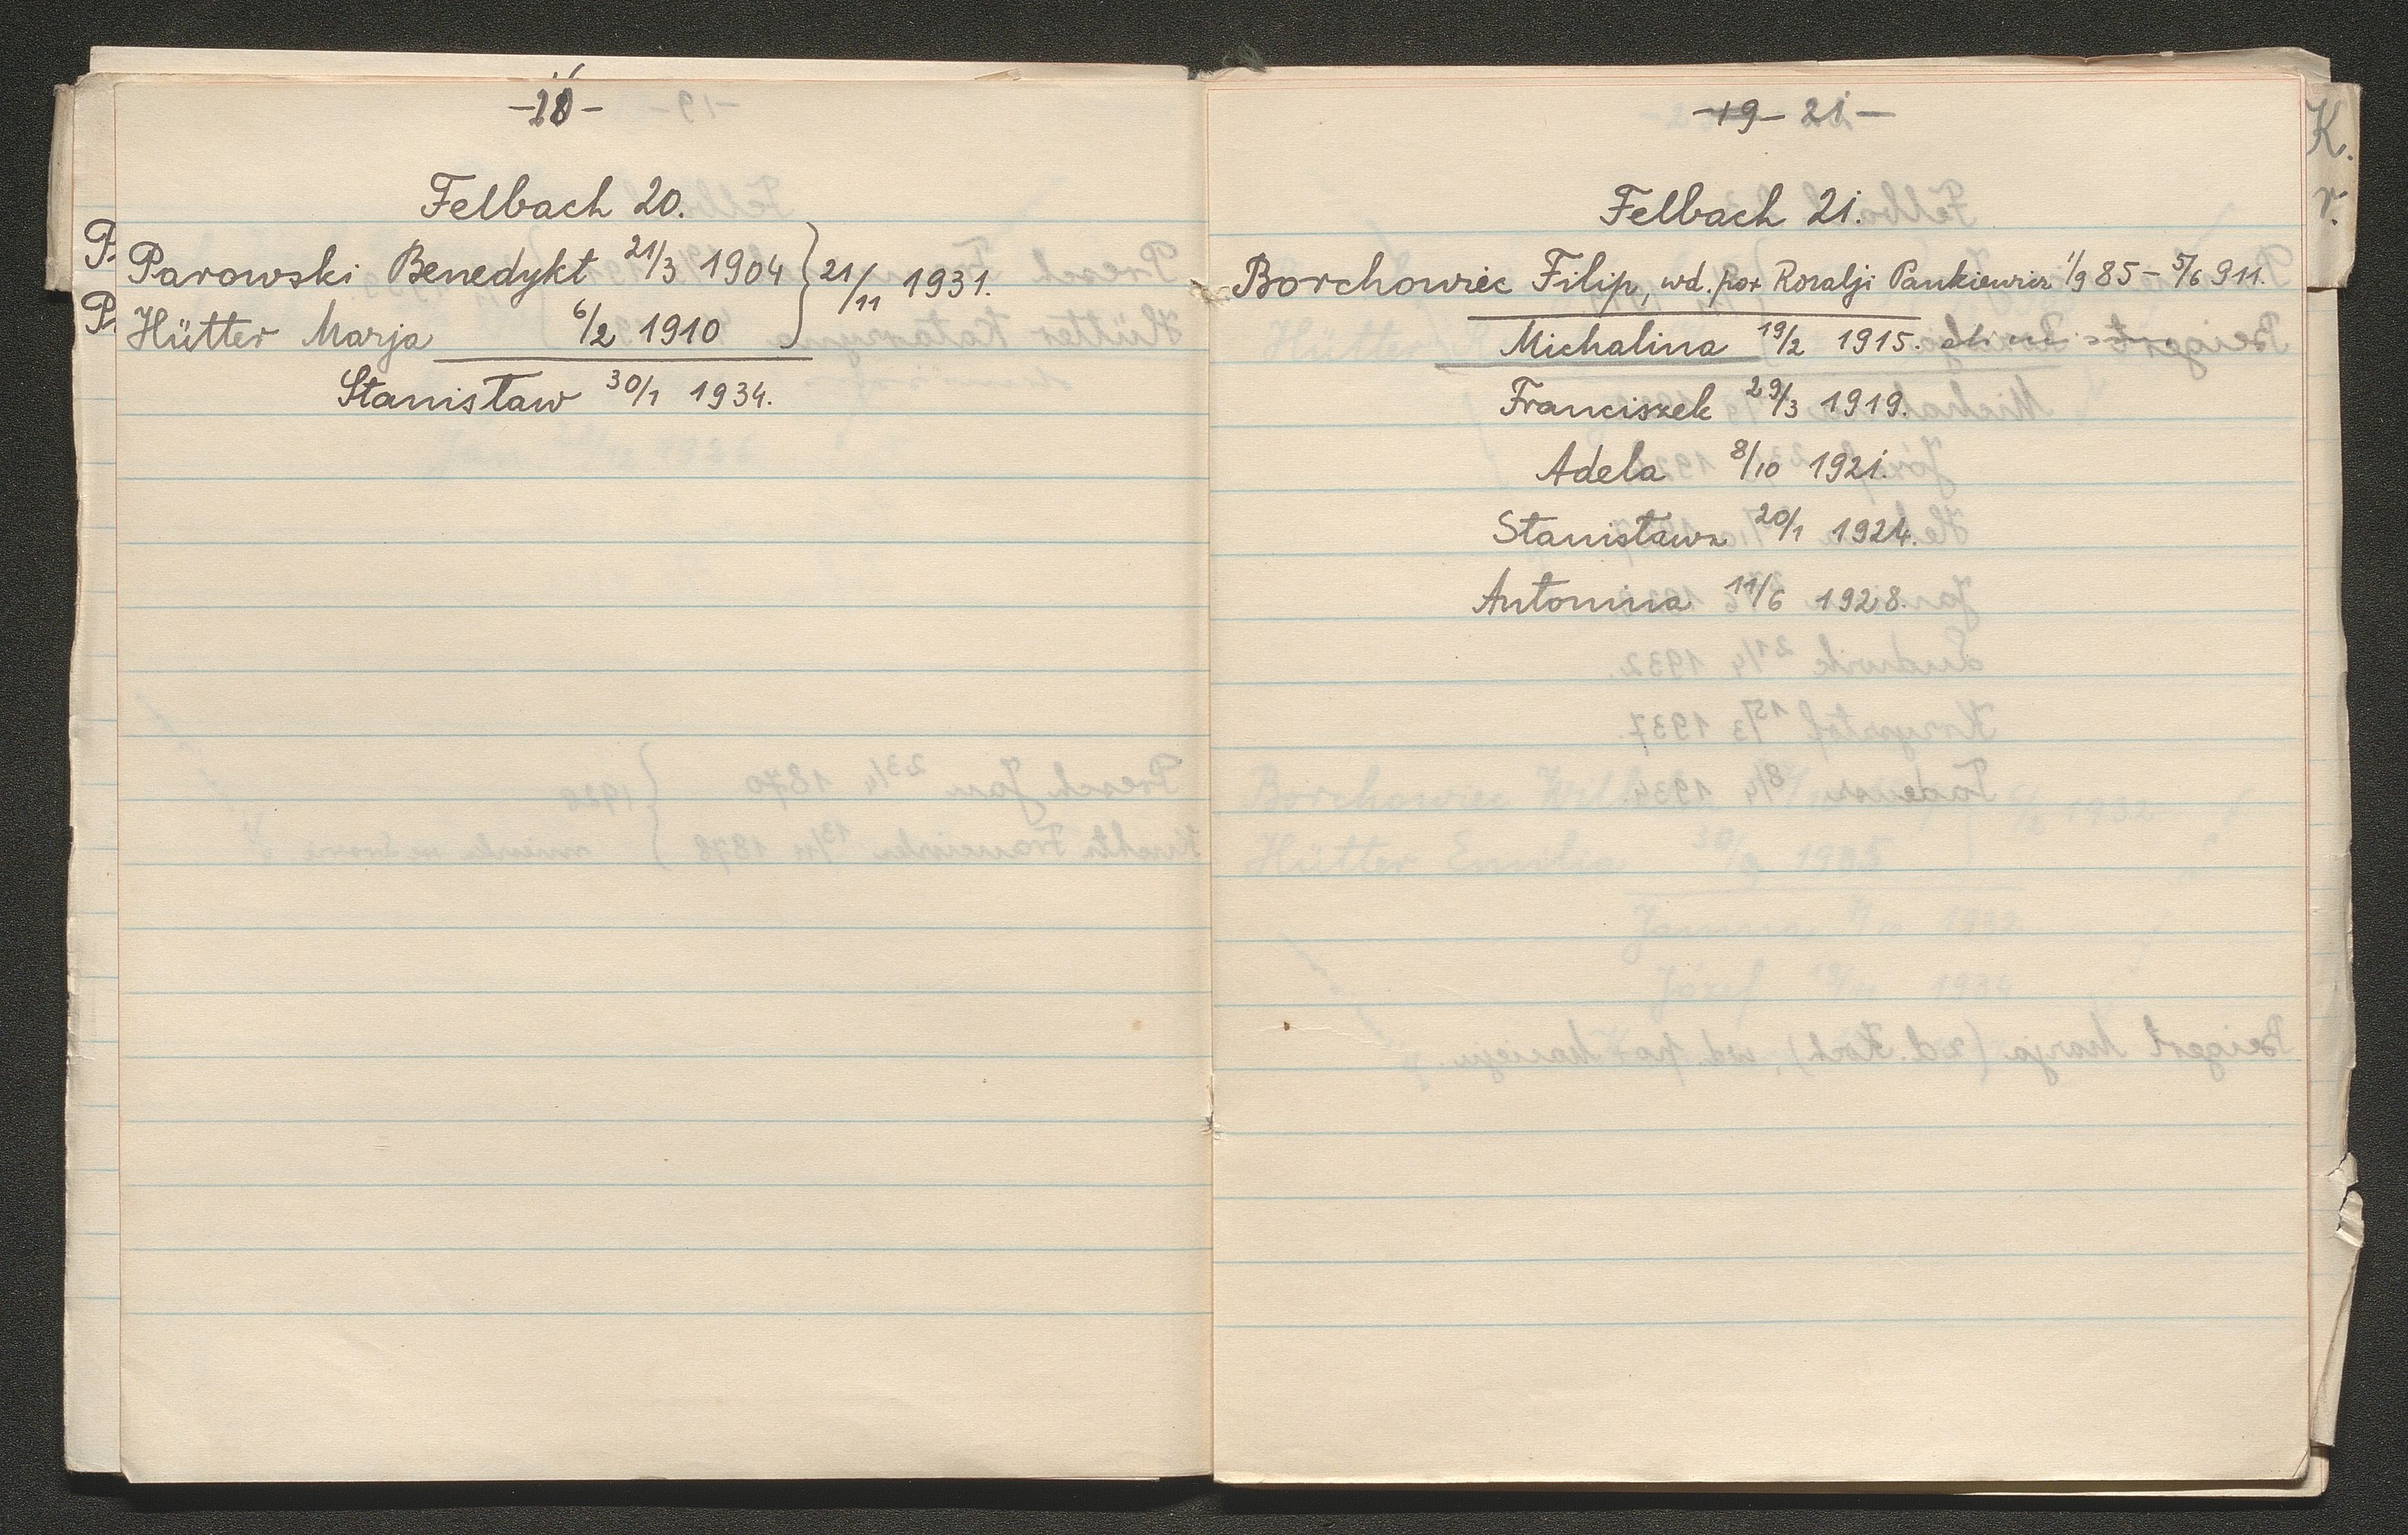 Felbach 20.
Parowski Benedykt 21/3 1904 } 21/11 1931.
Hütter Marja 6/2 1910
Stanisław 30/1 1934.
-19- 21 -
Felbach 21.
Borchowiec Filip, wd. po + Rozalji Pankiewicz 1/9 85 - 5/6 911.
Michalina 19/2 1915.
Franciszek 29/3 1919.
Adela 8/10 1921.
Stanisława 20/1 1924.
Antonina 11/6 1928.
K.
r.